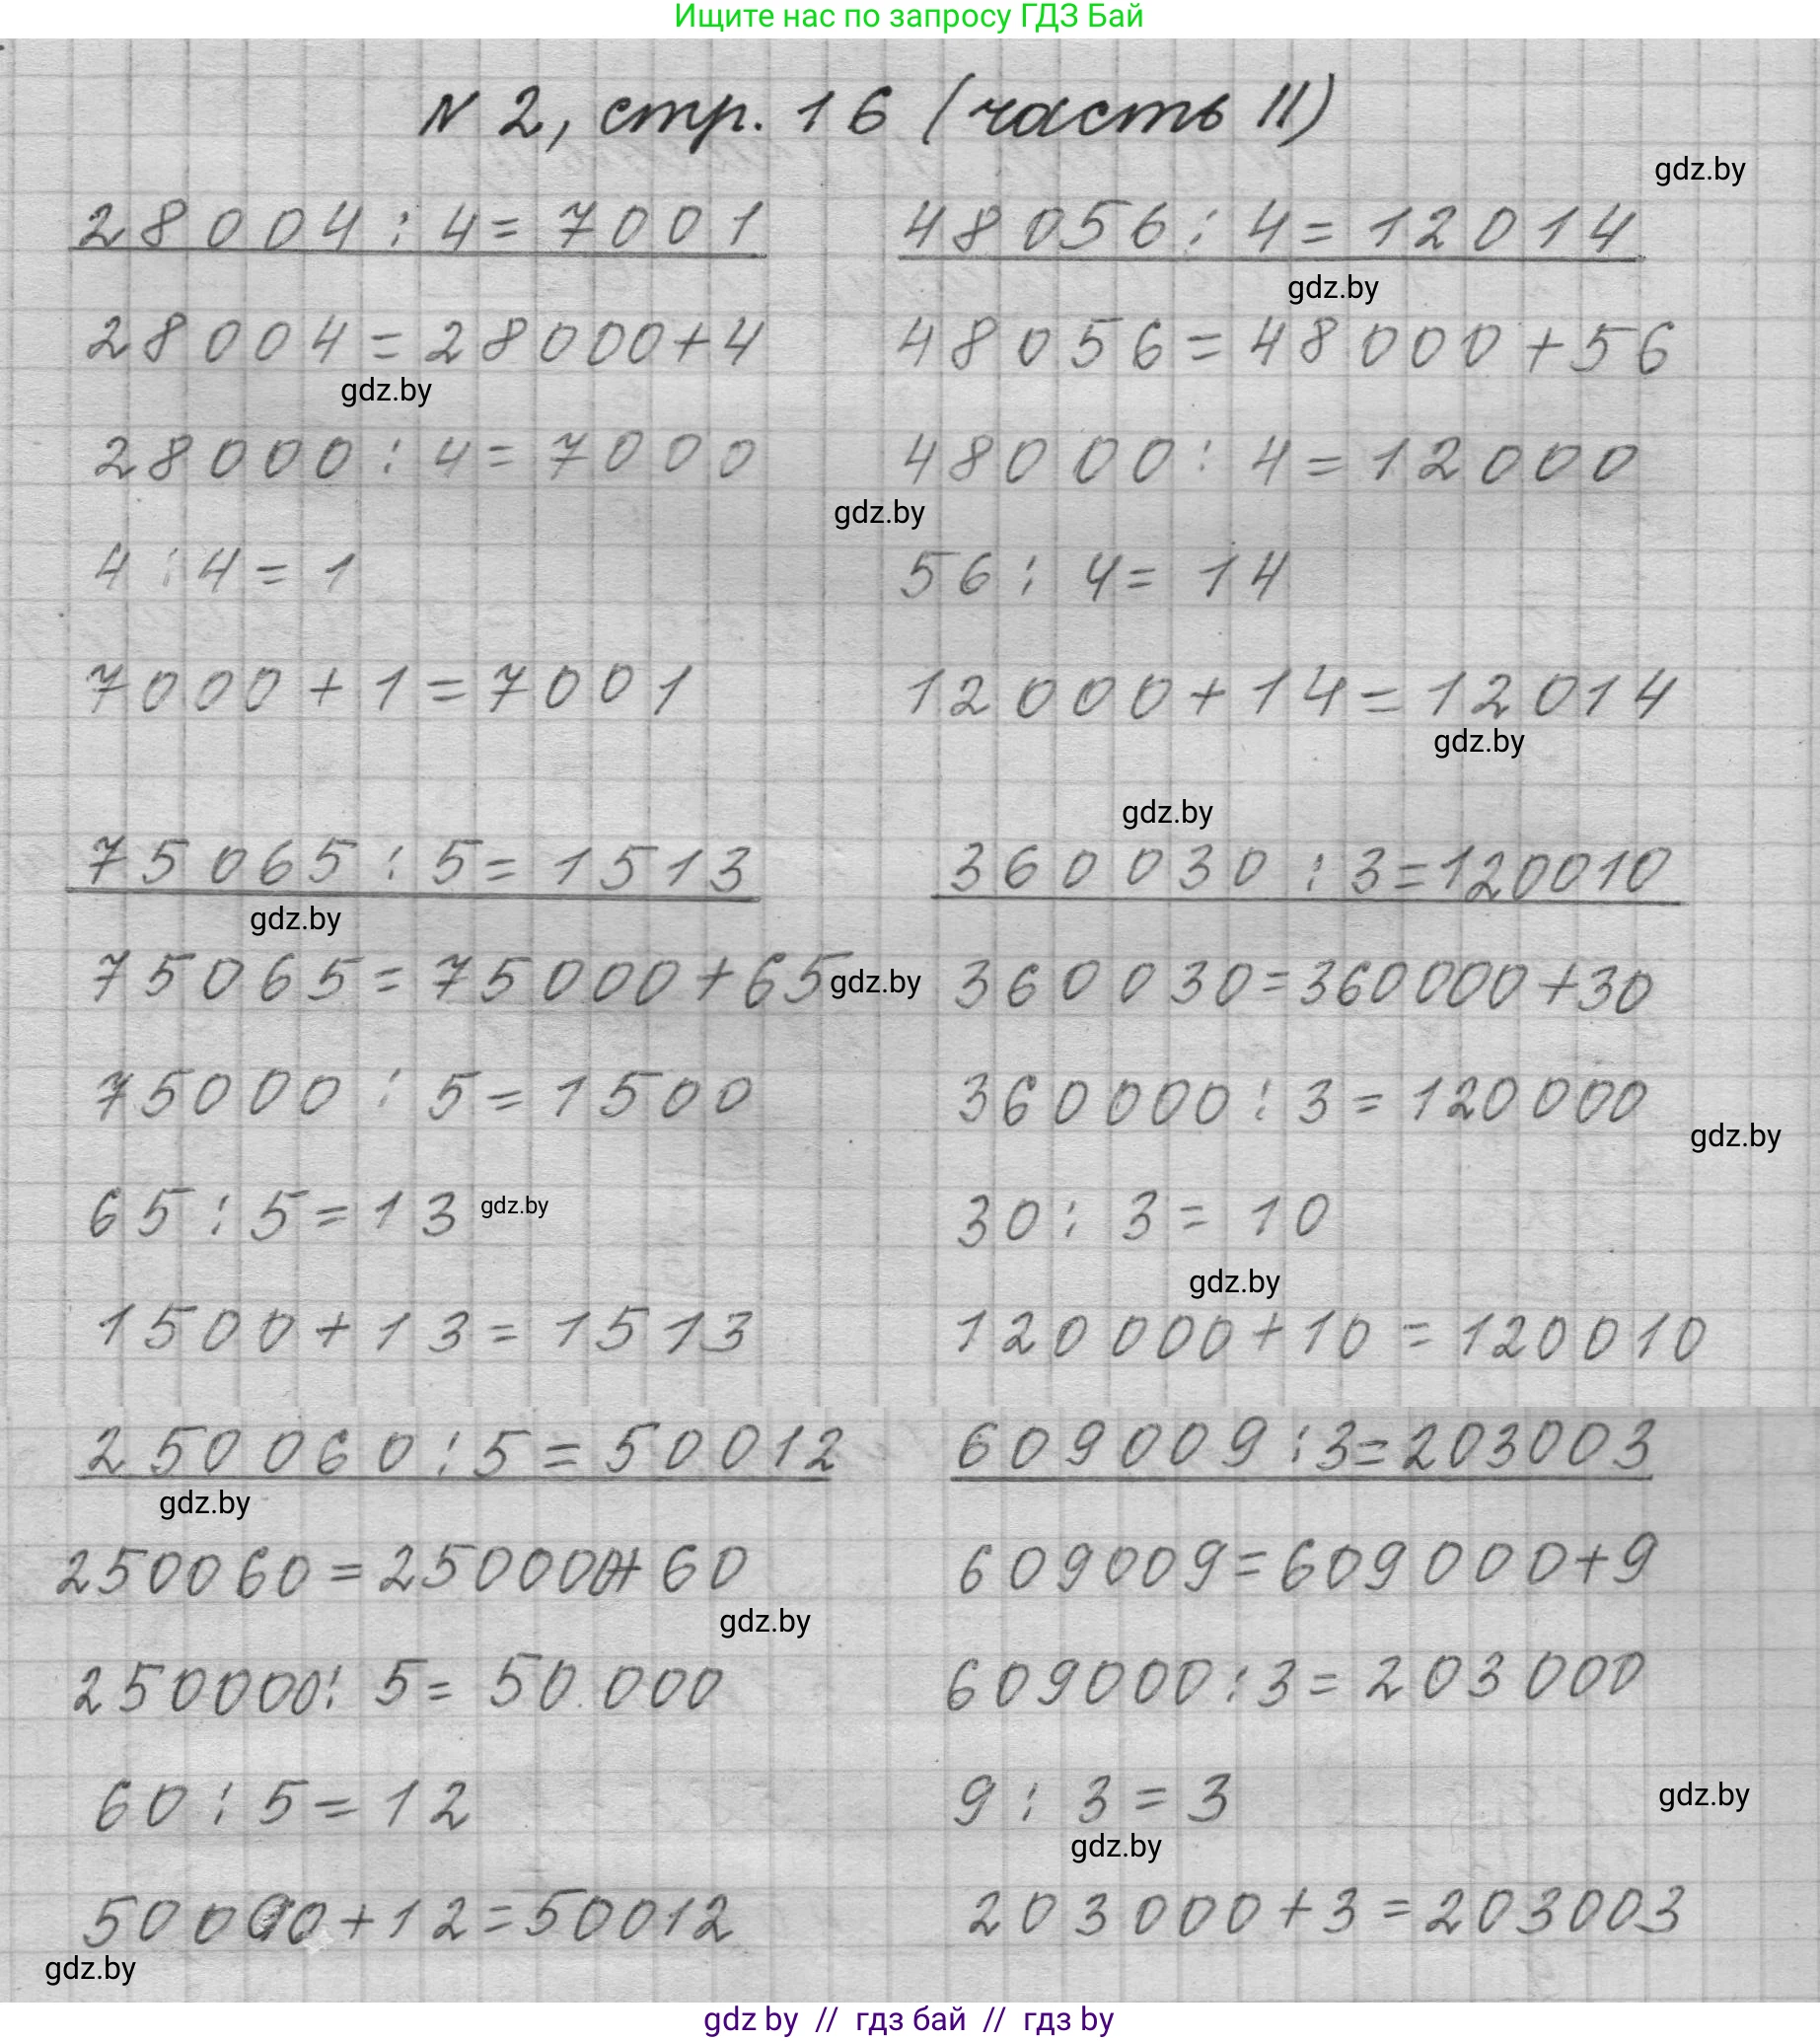 Ищите нас по запросу ГДЗ Бай
N 2, стр. 16 (часть II)
gdz.by
28004 : 4 = 7001
48056 : 4 = 12014
gdz.by
28004 = 28000 + 4
48056 = 48000 + 56
gdz.by
28000 : 4 = 7000
48000 : 4 = 12000
gdz.by
4 : 4 = 1
56 : 4 = 14
7000 + 1 = 7001
12000 + 14 = 12014
gdz.by
gdz.by
75065 : 5 = 1513
360030 : 3 = 120010
gdz.by
75065 = 75000 + 65
gdz.by
360030 = 360000 + 30
75000 : 5 = 1500
360000 : 3 = 120000
gdz.by
65 : 5 = 13
gdz.by
30 : 3 = 10
gdz.by
1500 + 13 = 1513
120000 + 10 = 120010
250060 : 5 = 50012
609009 : 3 = 203003
gdz.by
250060 = 250000 + 60
609009 = 609000 + 9
gdz.by
250000 : 5 = 50.000
609000 : 3 = 203000
60 : 5 = 12
9 : 3 = 3
gdz.by
gdz.by
50000 + 12 = 50012
203000 + 3 = 203003
gdz.by
gdz by // гдз бай // гдз by